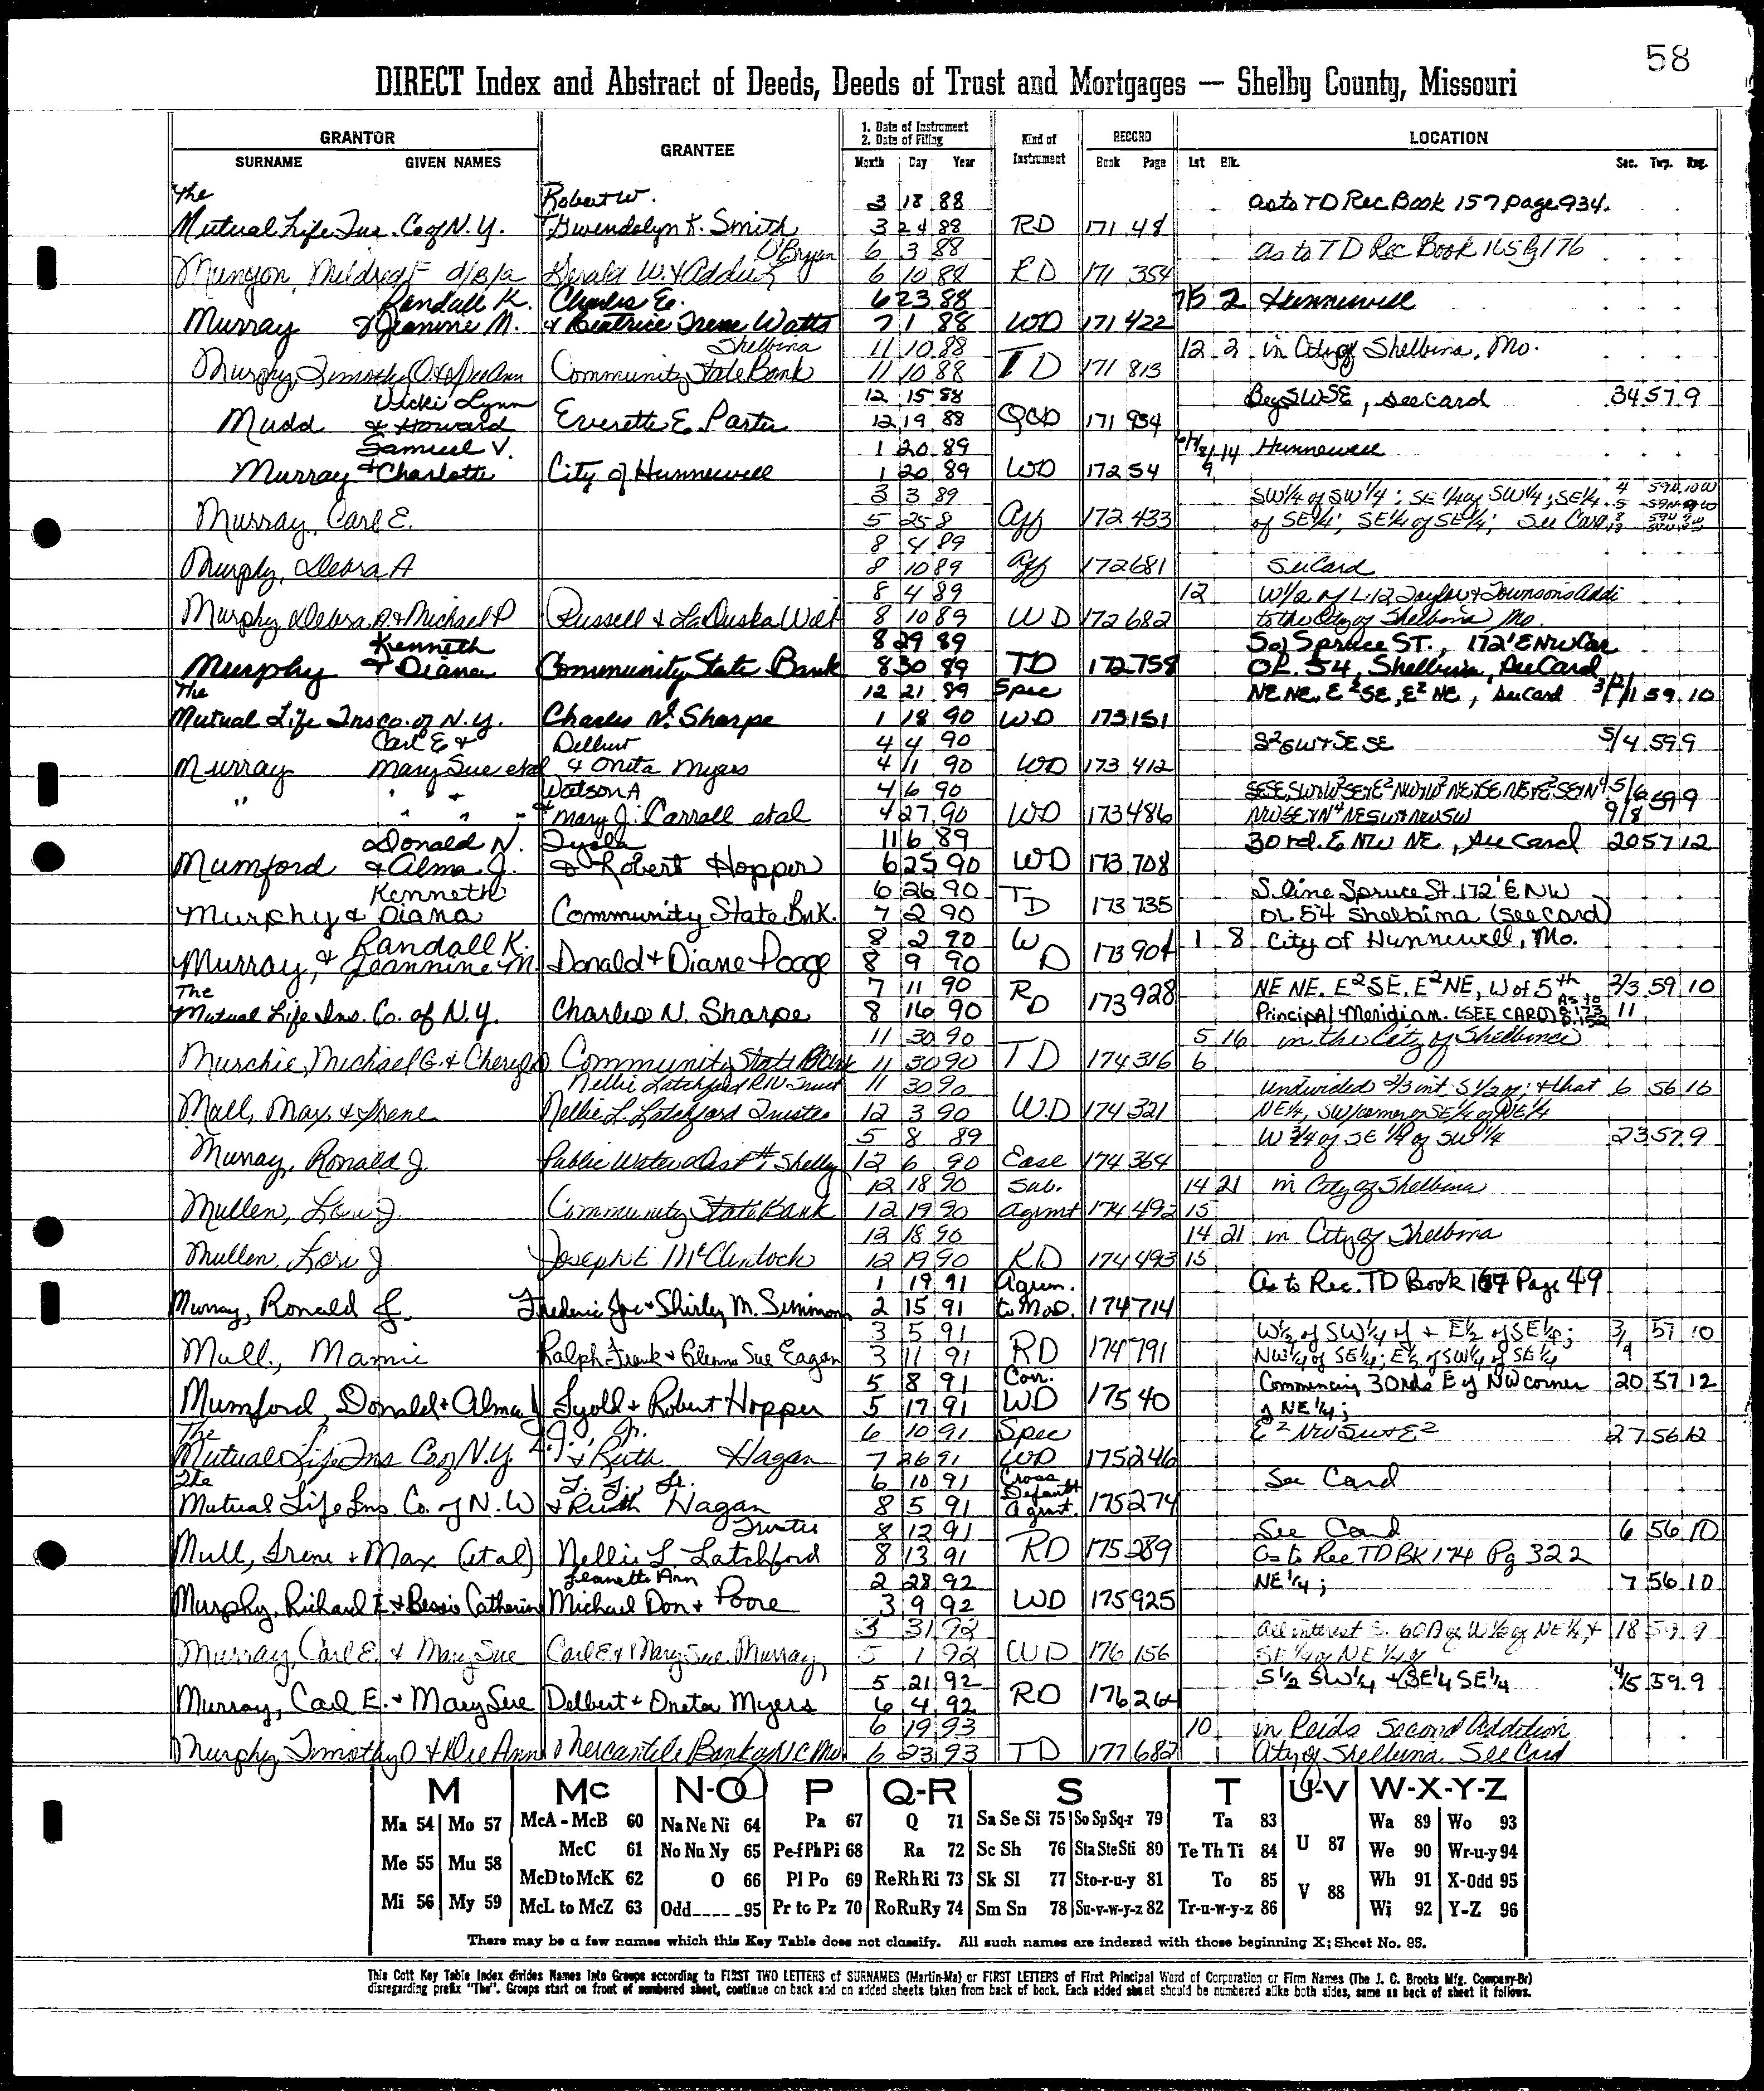 58
DIRECT Index and Abstract of Deeds, Deeds of Trust and Mortgages — Shelby County, Missouri
GRANTOR GRANTEE 1. Date of Instrument 2. Date of Filing Kind of Instrument RECORD LOCATION
SURNAME GIVEN NAMES Month Day Year Book Page Lot Blk. Sec. Twp. Rng.
The Robert W. 3 18 88 as to TD Rec Book 157 page 934.
Mutual Life Ins. Co of N.Y. + Gwendolyn K. Smith 3 24 88 RD 171 48
O'Bryan 6 3 88 as to TD Rec Book 165 Pg 176
Munson, Mildred F d/b/a Gerald W. & Addie 6 10 88 RD 171 354
Randall K. Charles E. 6 23 88 2 Hunnewell
Murray & Jeanine M. & Beatrice Irene Watts 7 1 88 WD 171 422
Shelbina 11 10 88 12 2 in City of Shelbina, Mo.
Murphy, Timothy O. & DeeAnn Community State Bank 11 10 88 TD 171 813
Vicki Lynn 12 15 88 Beg SWSE, see card 34 57 9
Mudd & Howard Everette E. 12 19 88 QCD 171 934
Samuel V. 1 20 89 Hunnewell
Murray & Charlotte City of Hunnewell 1 20 89 WD 172 54
3 3 89 SW¼ of SW¼; SE¼ of SW¼; SE¼
Murray, Carl E. 5 25 8 Aff 172 433 of SE¼; SE¼ of SE¼; See Card
8 4 89
Murphy, Debra A 8 10 89 Aff 172 681 See Card
8 4 89 12 W½ of L12 Taylor & Townsons Addi
Murphy, Debra A & Michael P Russell & LaDuska 8 10 89 WD 172 682 to the City of Shelbina, Mo.
Kenneth 8 29 89 Sol Spruce ST., 172' E NW Cor
Murphy & Diana Community State Bank 8 30 89 TD 172 758 OL. 54, Shelbina, See Card
The 12 21 89 Spec NE NE, E²SE, E²NE, See Card 3/2/11 59 10
Mutual Life Ins Co. of N.Y. Charles N. Sharpe 1 18 90 WD 173 151
Carl E & Delbert 4 4 90 S²SW & SE SE 5/4 59 9
Murray Mary Sue etal & Onita Myers 4 11 90 WD 173 412
" " " Watson A 4 6 90
" " " & Mary J. Carroll etal 4 27 90 WD 173 486
Donald N. Lyola 11 6 89 30 rd. E NW NE, See Card 20 57 12
Mumford & Alma J. & Robert Hopper 6 25 90 WD 173 708
Kenneth 6 26 90 S. line Spruce St. 172' E NW
Murphy & Diana Community State Bnk. 7 2 90 TD 173 735 OL 54 Shelbina (See Card)
Randall K. 8 2 90 1 8 City of Hunnewell, Mo.
Murray, & Jeannine M. Donald & Diane Poage 8 9 90 WD 173 904
The 7 11 90 NE NE. E²SE. E²NE, W of 5th 2/3 59 10
Mutual Life Ins. Co. of N.Y. Charles N. Sharpe 8 16 90 RD 173 928 Principal Meridian. (SEE CARD) As to B.173 P.152 11
11 30 90 5 16 in the City of Shelbina
Murchie, Michael G. & Cheryl Community State Bank 11 30 90 TD 174 316 6
Nellie Latchford RIV Trust 11 30 90 Undivided 2/3 int S 1/2 of; & that 6 56 10
Mull, Max & Irene Nellie L Latchford Trustee 12 3 90 W.D 174 321 NE¼, SW/corner of SE¼ of NE¼
5 8 89 W¾ of SE¼ of SW¼ 23 57 9
Murray, Ronald J. Public Water Dist #1 Shelby 12 6 90 Ease 174 364
12 18 90 Sub. 14 21 in City of Shelbina
Mullen, Lori J. Community State Bank 12 19 90 Agrmt 174 492 15
12 18 90 14 21 in City of Shelbina
Mullen, Lori J Joseph E McClintock 12 19 90 RD 174 493 15
1 19 91 Agrem. As to Rec. TD Book 167 Page 49
Murray, Ronald J. Frederic Joe & Shirley M. Simmons 2 15 91 to Mod. 174 714
3 5 91 W½ of SW¼ of + E½ of SE¼; 3/ 57 10
Mull, Mamie Ralph Frank & Glenna Sue Eagan 3 11 91 RD 174 791 NW¼ of SE¼; E½ of SW¼ of SE¼
5 8 91 Corr. Commencing 30 rds E of NW corner 20 57 12
Mumford, Donald & Alma J Lyoll & Robert Hopper 5 17 91 WD 175 40 of NE¼;
The Jr. 6 10 91 Spec E² NW SW & E² 27 56 12
Mutual Life Ins Co of N.Y. & Ruth Hagan 7 26 91 WD 175 246
The 6 10 91 Cross Default See Card
Mutual Life Ins. Co. of N.W & Ruth Hagan 8 5 91 Agmt. 175 274
Trustee 8 12 91 See Card 6 56 10
Mull, Irene & Max (etal) Nellie L. Latchford 8 13 91 RD 175 289 As to Rec. TD BK 174 Pg 322
Jeanette Ann 2 28 92 NE¼; 7 56 10
Murphy, Richard E & Bessie Catherine Michael Don & Poore 3 9 92 WD 175 925
3 31 92 All interest S. 60A of W½ of NE¼ & 18 59 9
Murray, Carl E. & Mary Sue Carl E & Mary Sue Murray 5 1 92 WD 176 156 SE¼ of NE¼ of
5 21 92 S½ SW¼ & SE¼ SE¼ 4/5 59 9
Murray, Carl E. & Mary Sue Delbert & Oneta Myers 6 4 92 RD 176 264
6 19 93 10 in Reids Second Addition
Murphy, Timothy O & DeeAnn Mercantile Bank of N C Mo 6 23 93 TD 177 682 City of Shelbina See Card
M Mc N-O P Q-R S T U-V W-X-Y-Z
Ma 54 Mo 57 McA - McB 60 Na Ne Ni 64 Pa 67 Q 71 Sa Se Si 75 So Sp Sq-r 79 Ta 83 Wa 89 Wo 93
Me 55 Mu 58 McC 61 No Nu Ny 65 Pe-f Ph Pi 68 Ra 72 Sc Sh 76 Sta Ste Sti 80 Te Th Ti 84 U 87 We 90 Wr-u-y 94
McD to McK 62 O 66 Pl Po 69 Re Rh Ri 73 Sk Sl 77 Sto-r-u-y 81 To 85 Wh 91 X-Odd 95
Mi 56 My 59 McL to McZ 63 Odd_____95 Pr to Pz 70 Ro Ru Ry 74 Sm Sn 78 Su-v-w-y-z 82 Tr-u-w-y-z 86 V 88 Wi 92 Y-Z 96
There may be a few names which this Key Table does not classify. All such names are indexed with those beginning X; Sheet No. 95.
This Cott Key Table Index divides Names Into Groups according to FIRST TWO LETTERS of SURNAMES (Martin-Ma) or FIRST LETTERS of First Principal Word of Corporation or Firm Names (The J. C. Brooks Mfg. Company-Br)
disregarding prefix "The". Groups start on front of numbered sheet, continue on back and on added sheets taken from back of book. Each added sheet should be numbered alike both sides, same as back of sheet it follows.